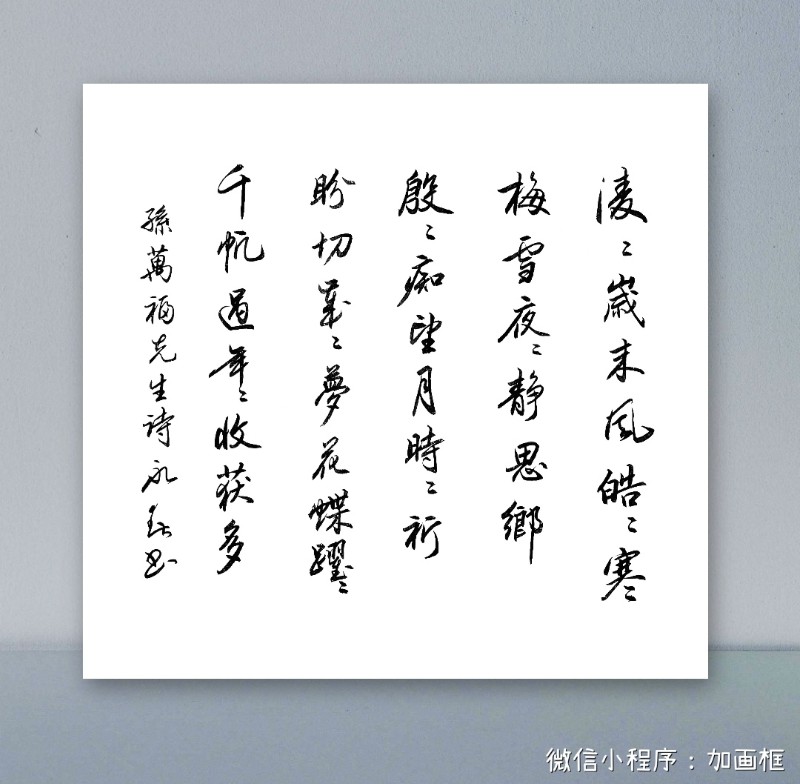 凌〻歲末風皓〻寒〻
梅雪夜〻靜思鄉
殷〻痴望月時〻祈
盼切〻夢花蝶躍〻
千帆過年〻收获多
孫萬福先生詩永書
微信小程序：加画框